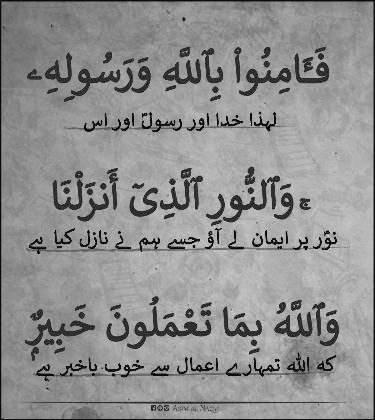 فَـَٔامِنُوا۟ بِٱللَّهِ وَرَسُولِهِۦ
لہذا خدا اور رسولؐ اور اس
وَٱلنُّورِ ٱلَّذِىٓ أَنزَلْنَا ۚ
نوؐر پر ایمان لے آؤ جسے ہم نے نازل کیا ہے
وَٱللَّهُ بِمَا تَعْمَلُونَ خَبِيرٌ
کہ اللہ تمہارے اعمال سے خوب باخبر ہے
Asim al Naqvi